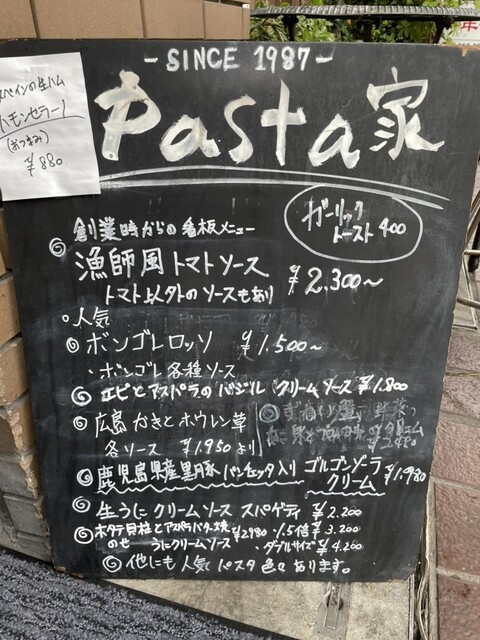 スペインの生ハム
ハモンセラーノ
(おつまみ)
¥880
- SINCE 1987 -
Pasta家
ガーリック
トースト 400
創業時からの看板メニュー
漁師風トマトソース ¥2,300~
トマト以外のソースもあり
人気
ボンゴレロッソ ¥1,500~
・ボンゴレ各種ソース
エビとアスパラのバジルクリームソース ¥1,800
広島かきとホウレン草
各ソース ¥1,950より
鹿児島県産黒豚パンチェッタ入り ゴルゴンゾーラ
クリーム ¥1,980
生うにクリームソース スパゲティ ¥2,200
ホタテ貝柱とアスパラバター焼
のせ ーうにクリームソース ¥2,980 ・1.5倍 ¥3,200
・ダブルサイズ ¥4,200
他にも人気パスタ色々あります。